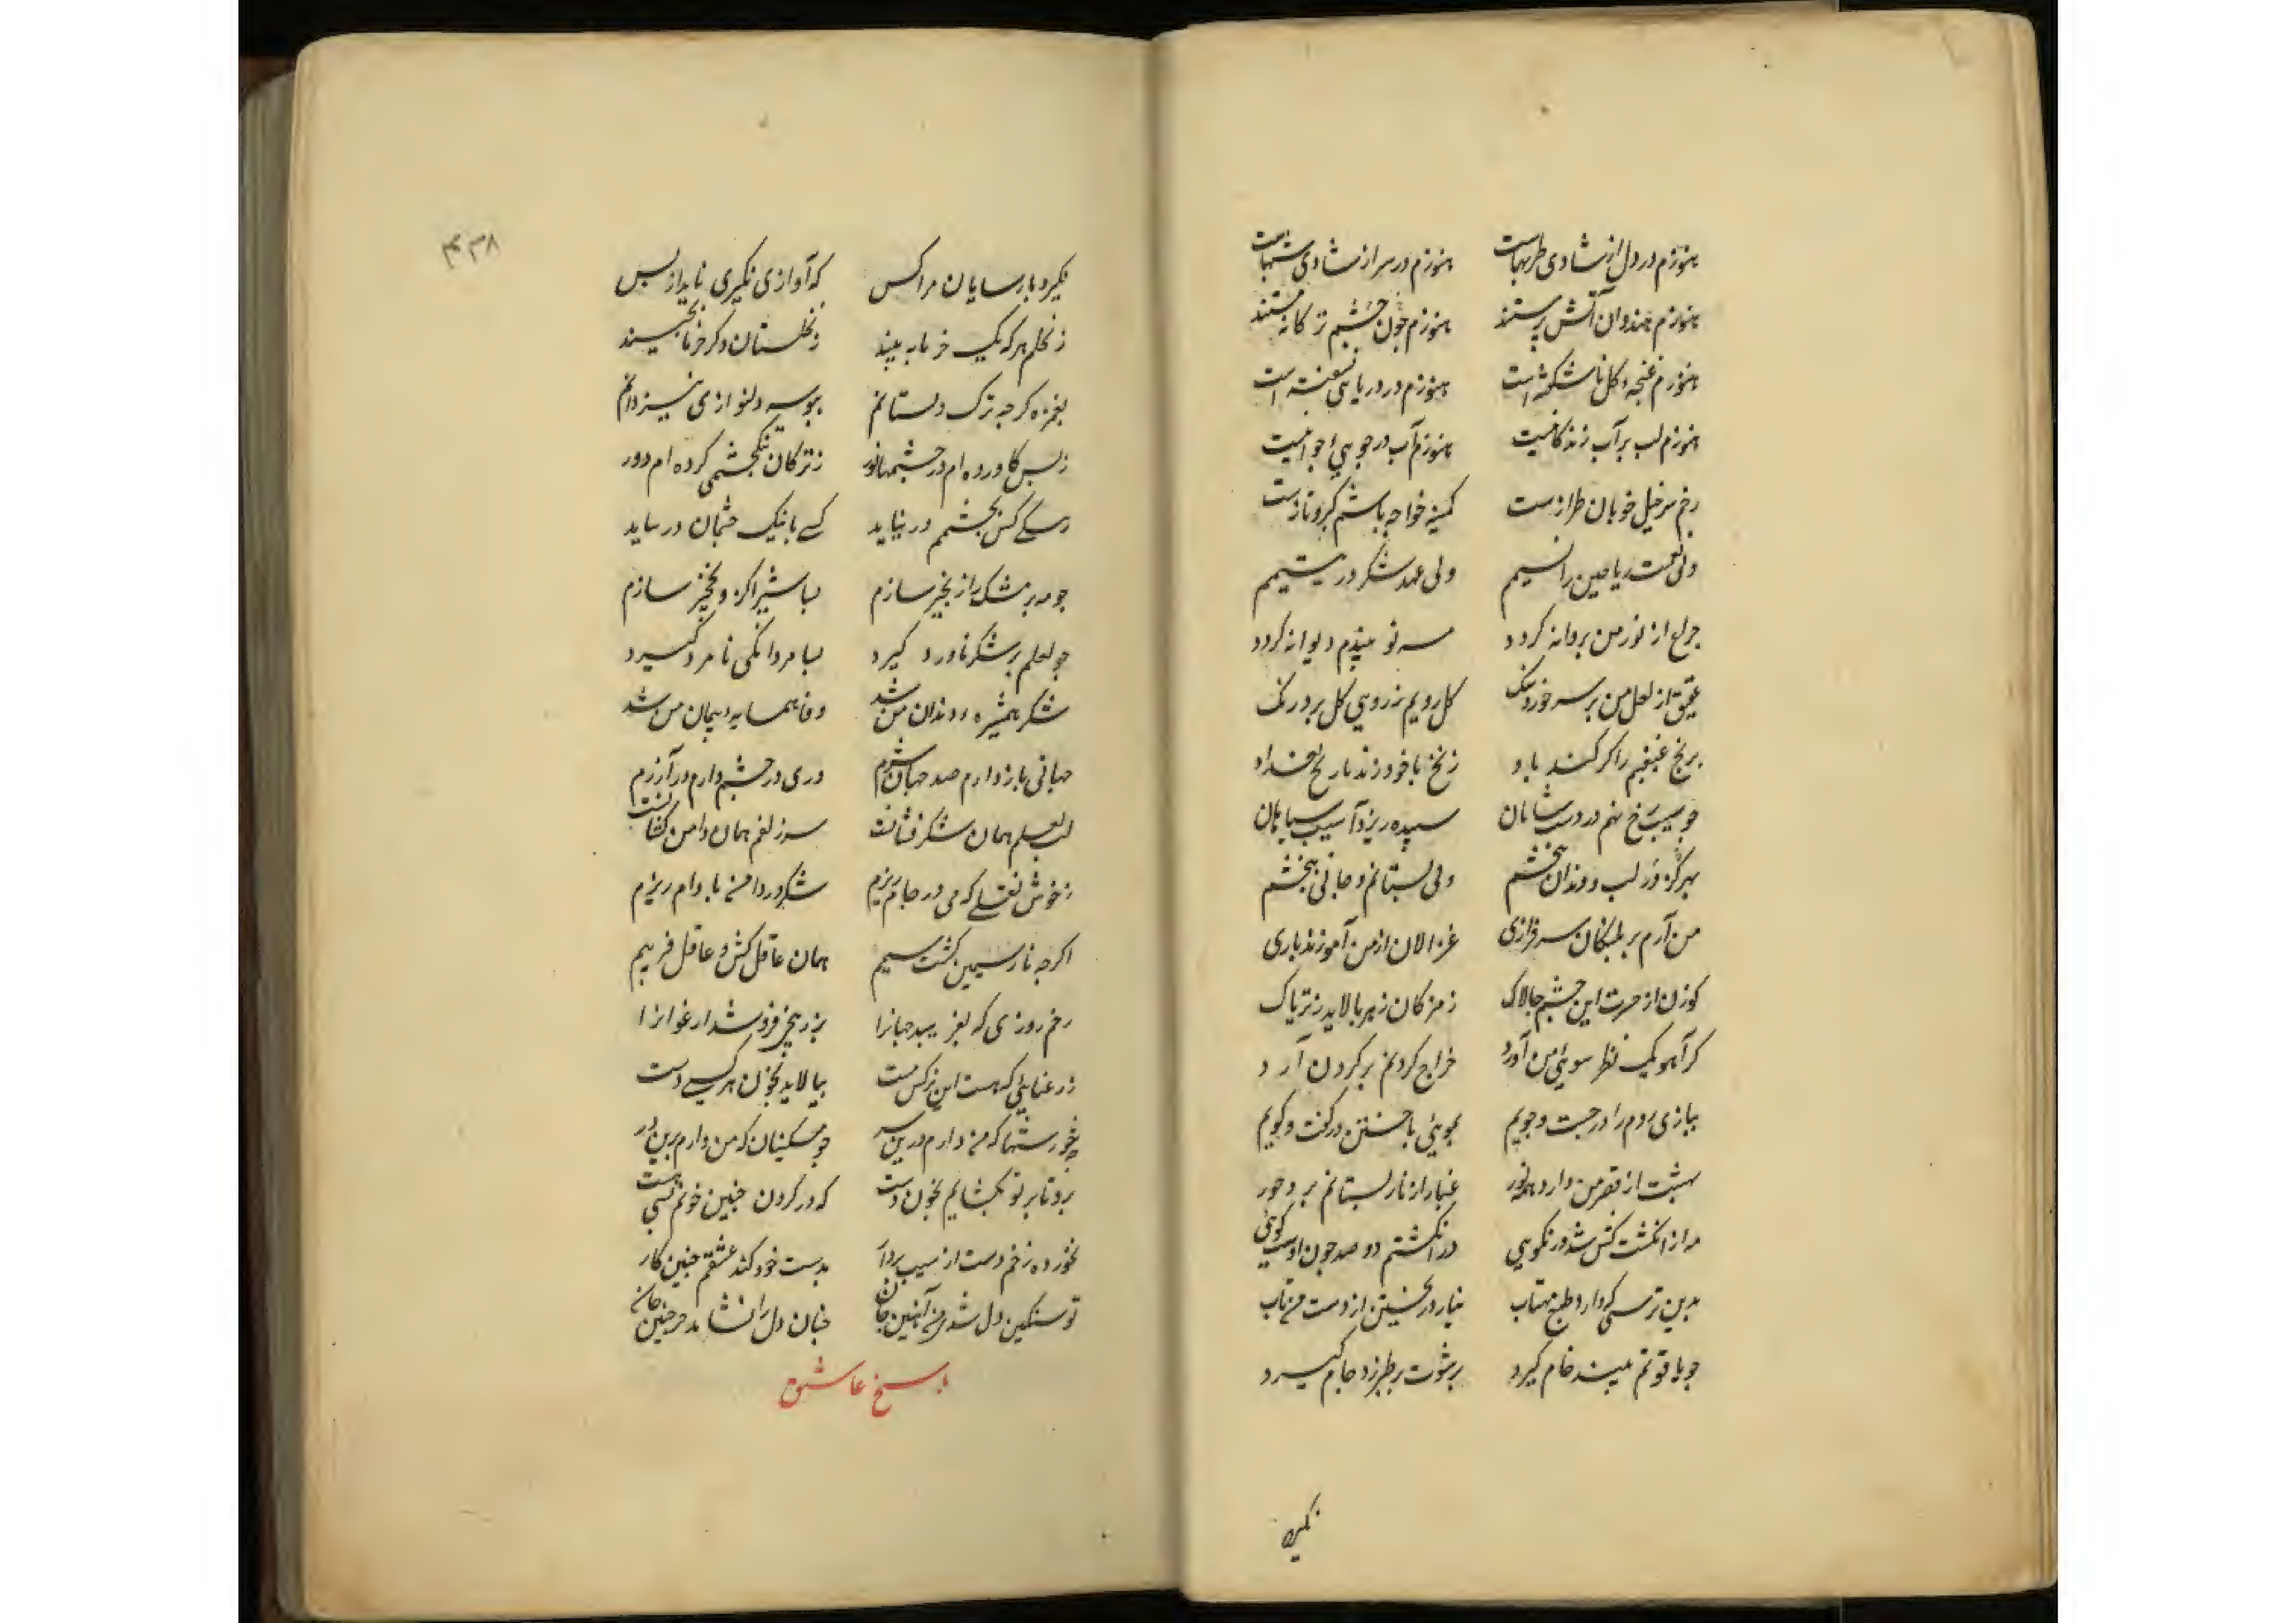 هنوزم در دل از شادی طربهاست هنوزم در سر از شادی شغبهاست
هنوزم هندوان آتش پرستند هنوزم چون چشم ترکانه مستند
هنوزم غنچه کل ناشکفته است هنوزم در دریایی نسفته است
هنوزم لب بر آب زندکانیست هنوزم آب در جوی جوانیست
رخم سرخیل خوبان طرازست کمینه خواجه باشم کبر و نازست
ولی نعمت ریاحین را نسیم ولی عهد شکر در یتیمم
چراغ از نور من پروانه کردد مه نو بیندم دیوانه کردد
عقیق از لعل من بر سر خورد سنک کل رویم ز روی کل برد رنک
ترنج غبغبم را کر کند یاد زنخ با خود زند نارنج بغداد
چو سیب رخ نهم در دست شاهان سبد ریزد آسیب سپاهان
بهر در کز لب و دندان ببخشم دلی بستانم و جانی ببخشم
من آرم بر پلنکان سرفرازی غزالان از من آموزند بازی
کوزن از حسرت این چشم چالاک ز مژکان زهر پالاید نه تریاک
کر آهو یک نظر سوی من آرد خراج کردنم بر کردن آرد
ببازی روم را در جست و جویم ببوئی با ختن در کفت و کویم
بهشت از قصر من دارد همه نور عیار از نار پستانم برد حور
مه از انکشت کش شد در نکویی در انکشتم دو صد چون اوست کویی
بدین ترسی که دارد طبع مهتاب نیارد ریختن از دست من آب
چو یاقوتم نبیند خام کیرد برشوت بر طبرزد جام کیرد
نکیرد
۴۳۸
نکیرد پارسایان مرا کس که آوازی نکیری ناید از پس
ز نخلم هر که یک خرما به بیند ز نخلستان دکر خرما نچیند
بغمزه کرچه ترک دلستانم ببوسه دلنوازی نیز دانم
ز بس کاورده ام در چشمها نور ز ترکان تنکچشمی کرده ام دور
ز تنکی کس بچشمم در نیاید کسی با تنک چشمان در نیاید
چو مه بر مشک را زنجیر سازم بسا شیرا کزو نخجیر سازم
چو لعلم بر شکر ناورد کیرد بسا مردا که نامرد کیرد
شکر همشیره دندان من شد وفا همسایه پیمان من شد
جهانی ناز دارم صد جهان شرم دری در چشم دارم در آزرم
لب لعلم همان شکر فشانست سر زلفم همان دامن کشانست
ز خوش نقلی که می در جام ریزم شکر در دامن بادام ریزم
اکرچه نار سیمین کشت سیبم همان عاقل کش و عاقل فریبم
رخم روزی که بفریبد جهانرا بزرنیخی فروشد ارغوانرا
ز رعنایی که هست این نرکس مست نیالاید بخون هر کسی دست
چه شورشها که من دارم درین سر چه مسکینان که من دارم برین در
برو تا بر تو نکشایم بخون دست که در کردن چنین خونم بسی هست
نخورده زخم دست از سیب بردار بدست خود کند عشقم چنین کار
تو سنکین دل شدی من آهنین جان چنان دل را نشاید جز چنین جان
پاسخ عاشق